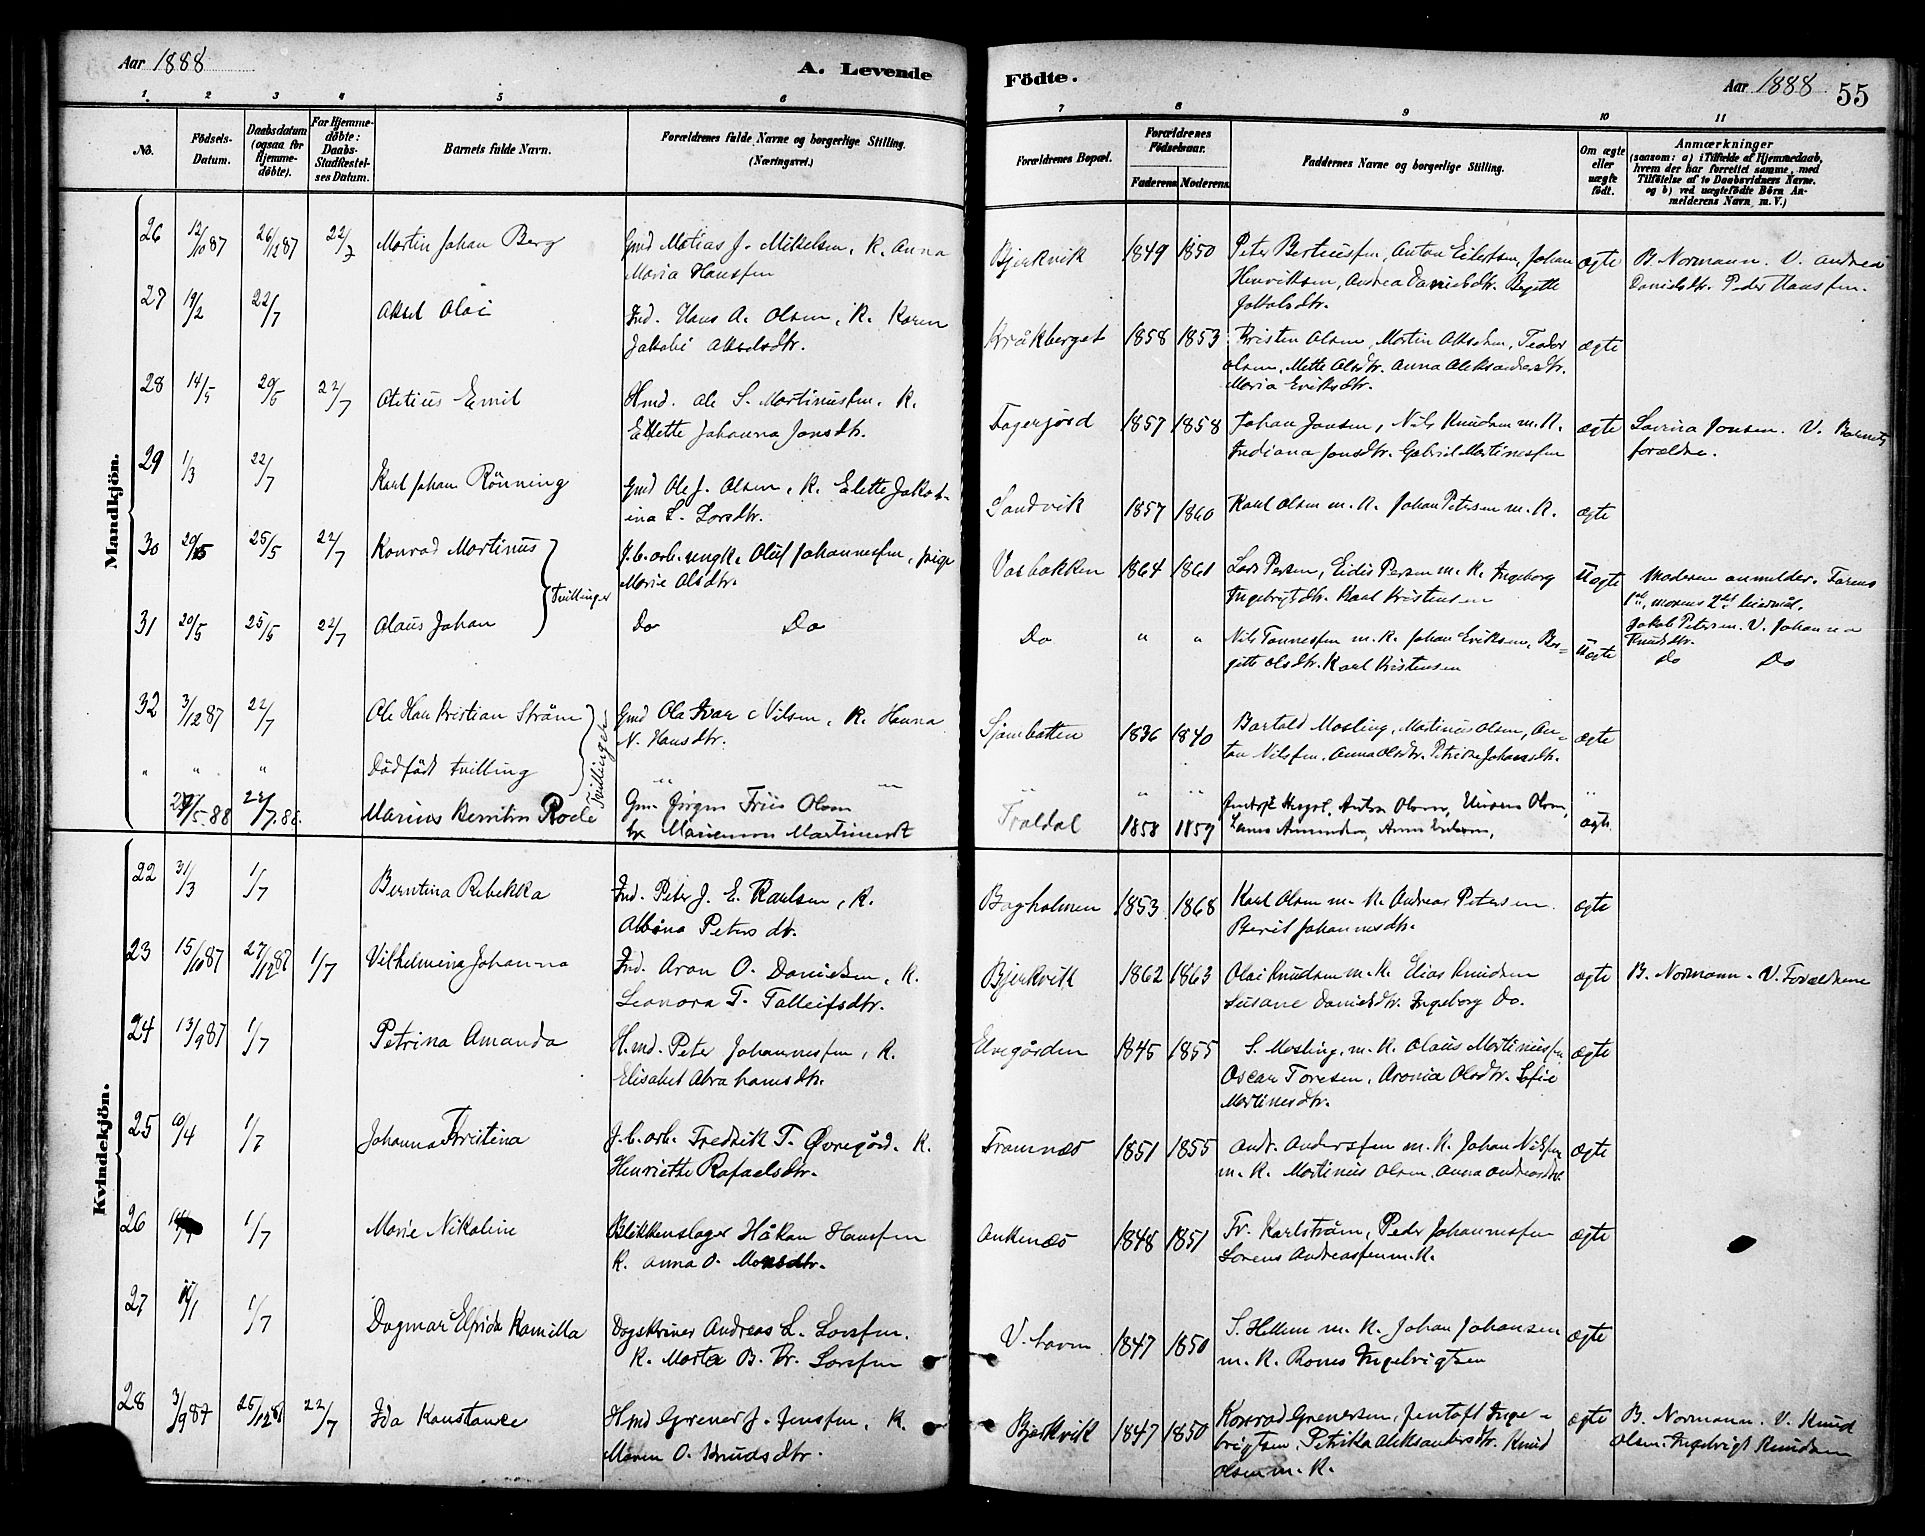 Aar 1888
A. Levende
Födte.
Aar 1888
55
1. 2 3 4 5 6 7 8 9 10 11
No.
Födsels-Datum.
Daabsdatum (ogsaa for Hjemmedöbte).
For Hjemmedöbte: Daabs-Stadfæstelses Datum.
Barnets fulde Navn.
Forældrenes fulde Navne og borgerlige Stilling.
(Næringsvei.)
Forældrenes Bopæl.
Forældrenes Födselsaar.
Faderens Moderens
Faddernes Navne og borgerlige Stilling.
Om ægte eller uægte födt.
Anmærkninger
(saasom: a) i Tilfælde af Hjemmedaab, hvem der har forrettet samme, med Tilföielse af to Daabsvidners Navne, og b) ved uægtefödte Börn Anmelderens Navn m. V.)
Mandkjön.
26 12/10 87 26/12 87 22/7 Martin Johan Berg
Gmd Matias J. Mikkelsen, K. Anna
Maria Hansfen
Bjerkvik 1849 1850
Peter Berteusfen, Anton Eilertsen, Johan
Henriksen, Andrea Danielsdtr. Begitte
Jakobsdtr.
ægte
B. Normann. V. Andrea
Danielsdtr. Peder Hansfen.
27 19/2 22/7 Aksel Olai
Ind. Hans A. Olsen, K. Karen
Jakobi Akselsdtr.
Kråkberget 1858 1853
Kristen Olsen, Martin Akselsen, Teodor
Olsen, Mette Olsdtr. Anna Aleksandersdtr.
Maria Eriksdtr.
ægte
28 14/5 20/5 22/7 Atitius Emil
Hmd. Ole S. Martinusfen, K.
Ellette Johanna Jonsdtr.
Fagerjord 1857 1858
Johan Jonsen, Nils Knudsen m. K.
Indiana Jonsdtr. Gabriel Martinusfen
ægte
Lovina Jonsen. V. Barnets
forældre.
29 1/3 22/7 Karl Johan Rönning
Gmd Ole J. Olsen, K. Elette Jakob-
ina L. Larsdtr.
Sandvik 1857 1860
Karl Olsen m. K. Johan Petersen m. K.
ægte
30 20/5 25/5 22/7 Konrad Martinus
Tvillinger
J.b.arb. ungk. Oluf Johannesfen, pige
Marie Olsdtr.
Vasbakken 1864 1861
Lars Persen, Eidis Persen m. K. Ingeborg
Ingebrigtsdtr. Karl Kristensen
Uægte
Moderen anmelder. Farens
1ste, morens 2det leiermål.
Jakob Petersen. V. Johanna
Knudsdtr.
31 20/5 25/5 22/7 Olaus Johan
Do Do
Do " "
Nils Tonnesfen m. K. Johan Eriksen, Ber-
gitte Olsdtr. Karl Kristensen
Uægte
Do Do
32 3/12 87 22/7 Ole Hau Kristian Ström
Tvillinger
Gmd Ole Ivar Nilsen, K. Hanna
N. Hansdtr.
Sjømbotten 1836 1840
Bartold Mosling, Martinus Olsen, An-
ton Nilsfen, Anna Olsdtr. Petrikke Johansdtr.
ægte
" " " Dødfødt tvilling
" "
27/5.88 22/7.88. Marius Bernitin Rode
Gm. Jörgen Friis Olsen
Traldal 1858 1859
ægte
Kvindekjön.
22 31/3 1/7 Berntina Rebekka
Ind. Peter J. E. Karlsen, K.
Albina Petersdtr.
Bogholmen 1853 1868
Karl Olsen m. K. Andreas Petersen
Berit Johannesdtr.
ægte
23 15/10 87 27/12 87 1/7 Vilhelmina Johanna
Ind. Aron O. Danielsen, K.
Leonora T. Talleifsdtr.
Bjerkvik 1862 1863
Olai Knudsen m. K. Elias Knudsen
Susane Danielsdtr. Ingeborg Do.
ægte
B. Normann. V. Forældrene
24 13/9 87 1/7 Petrina Amanda
Hmd. Peter Johannesfen, K.
Elisabet Abrahamsdtr.
Elvegården 1845 1855
S. Mosling, m. K. Olaus Martinusfen
Oscar Toresen, Aronia Olsdtr. Sofie
Martinesdtr.
ægte
25 10/4 1/7 Johanna Kristina
J.b.arb. Fredrik T. Øvregård. K.
Henriette Rafaelsdtr.
Framnæs 1851 1855
Andr. Andersfen m. K. Johan Nilsfen
m. K. Martinus Olsen, Anna Andreasdtr.
ægte
26 1/7 Marie Nikoline
Blikkenslager Håkan Hansfen
K. Anna O. Monsdtr.
Ankenæs 1848 1851
Fr. Karlström, Peder Johannesfen
Lorens Andreasfen m. K.
ægte
27 1/7 Dagmar Elfrida Kamilla
Dagskriver Andreas L. Larsfen.
K. Marta B. Kr. Larsfen
V. havn 1847 1850
S. Hellem m. K. Johan Johansen
m. K. Rones Ingebrigtsen
ægte
28 3/9 87 25/12 87 22/7 Ida Konstance
Hmd Grener J. Jensfen, K.
Maren O. Knudsdtr.
Bjerkvik 1847 1850
Konrad Grenersen, Jentoft Inge-
brigtsen, Petrikka Aleksandersdtr. Knud
Olsen m. K.
ægte
B. Normann. V. Knud
Olsen. Ingebrigt Knudsen